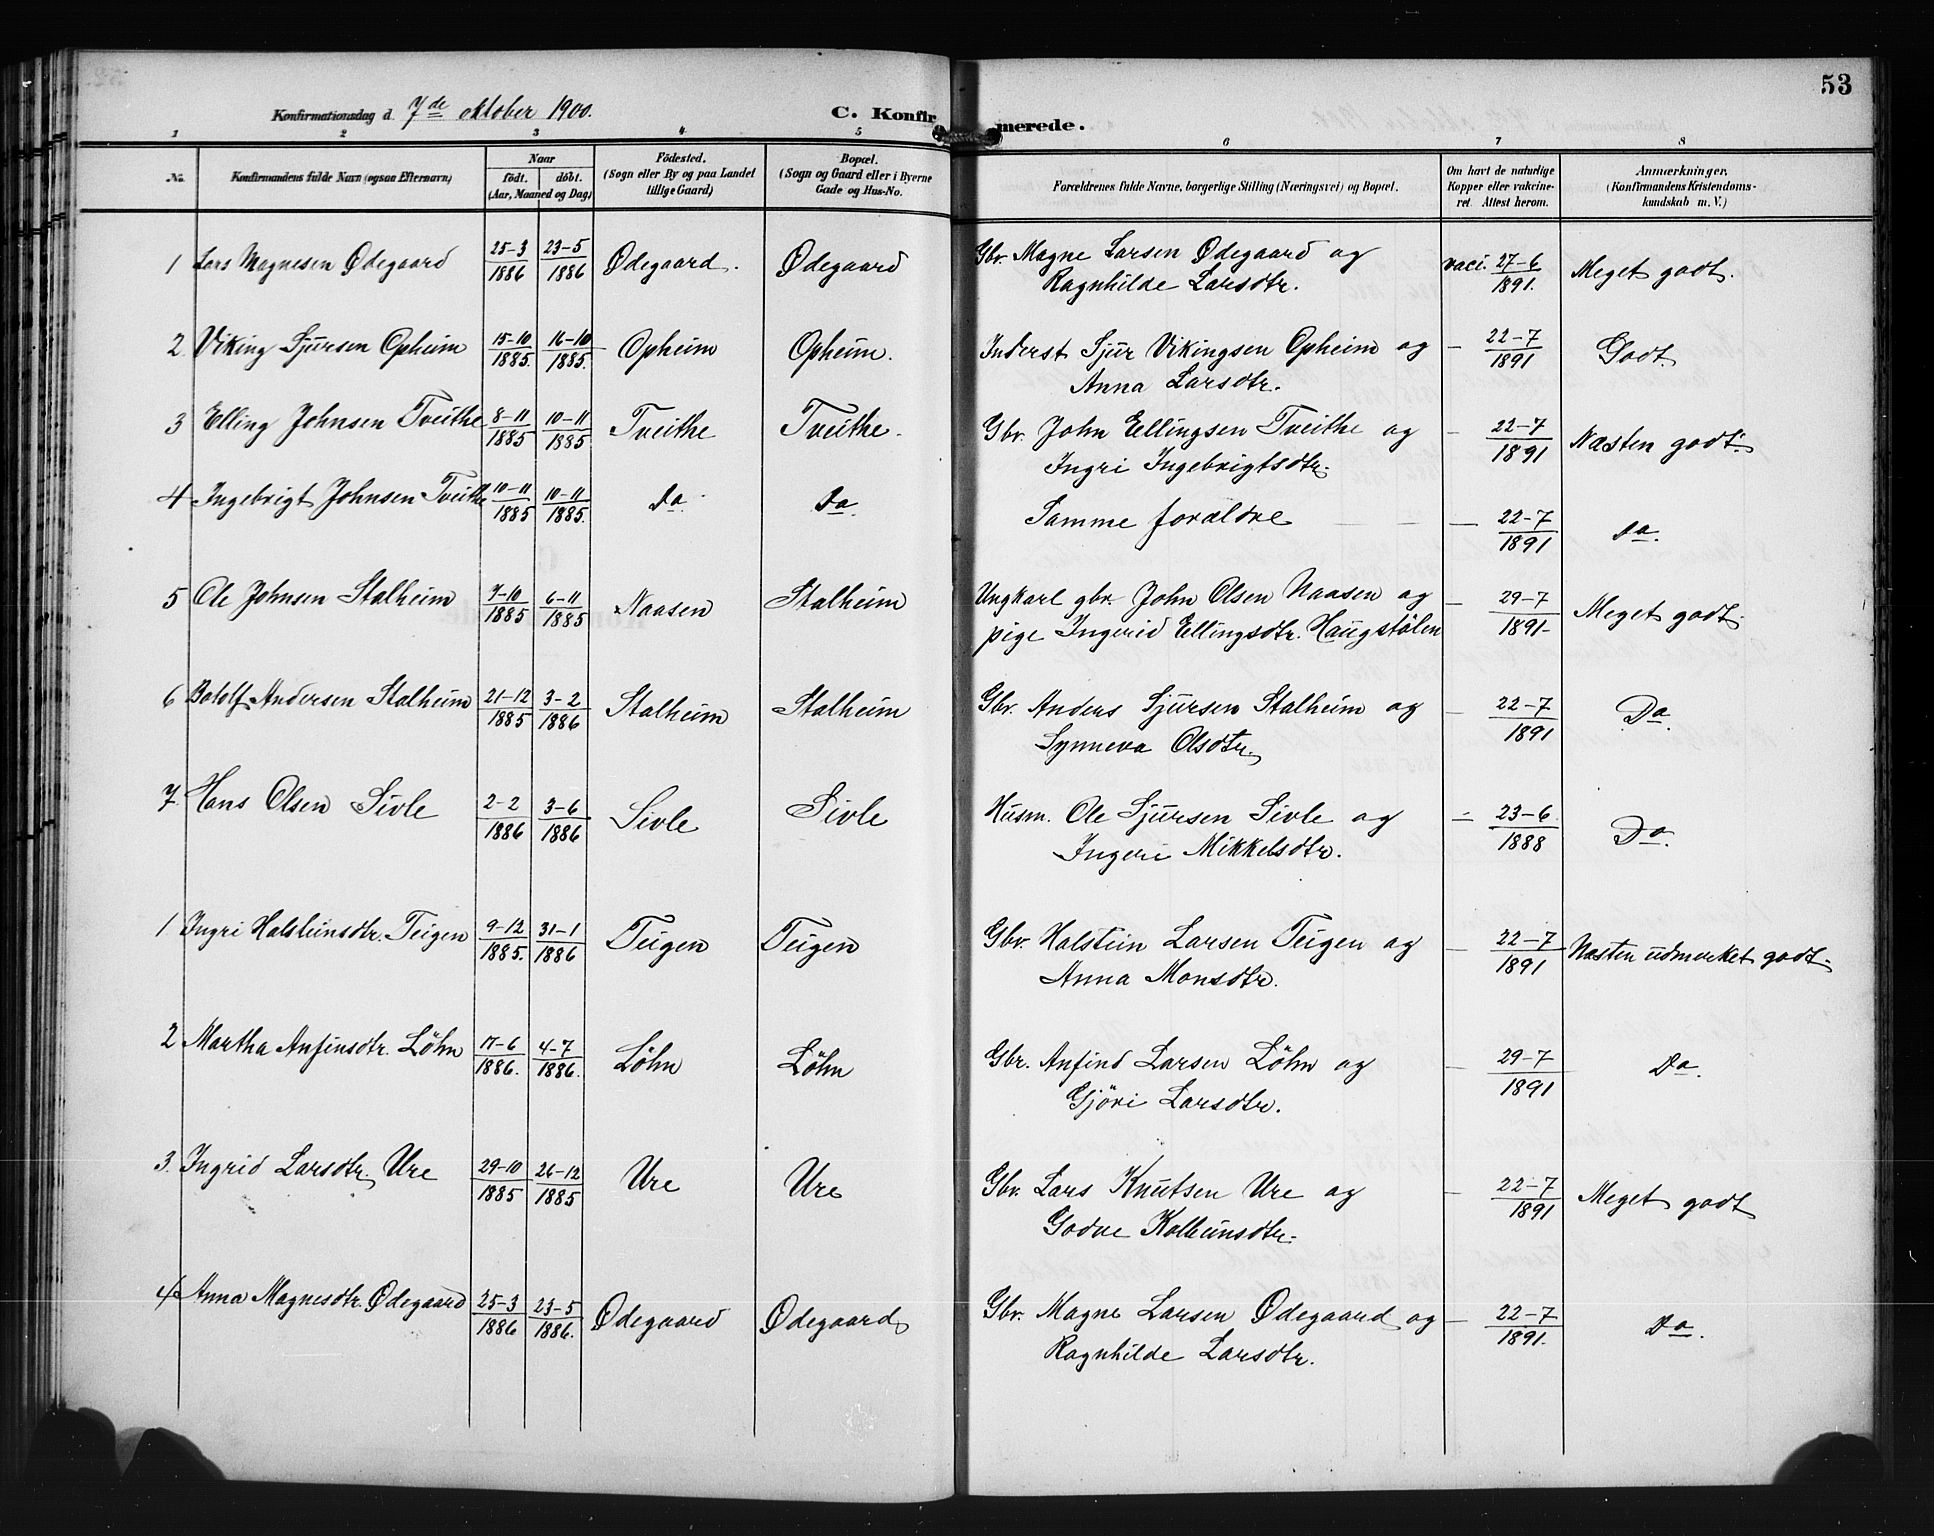 53
Konfirmationsdag d. 7de oktober 1900. C. Konfirmerede.
1 2 3 4 5 6 7 8
No. Konfirmandens fulde Navn (ogsaa Efternavn)
Naar
födt. döbt.
(Aar, Maaned og Dag)
Födested.
(Sogn eller By og paa Landet
tillige Gaard)
Bopæl.
(Sogn og Gaard eller i Byerne
Gade og Hus-No.
Forældrenes fulde Navne, borgerlige Stilling (Næringsvei) og Bopæl.
Om havt de naturlige
Kopper eller vakcine-
ret. Attest herom.
Anmærkninger.
(Konfirmandens Kristendoms-
kundskab m. V.)
1 Lars Magnesen Ødegaard 25-3 1886 23-5 1886 Ødegaard. Ødegaard Gbr. Magne Larsen Ødegaard og vacc. 27-6 1891. Meget godt.
Ragnhilde Larsdtr.
2 Viking Sjursen Opheim 15-10 1885. 16-10 1885. Opheim Opheim. Inderst Sjur Vikingsen Opheim og - 22-7 1891 Godt.
Anna Larsdtr.
3 Elling Johnsen Tveithe 8-11 1885 10-11 1885. Tveithe Tveithe. Gbr. John Ellingsen Tveithe og - 22-7 1891 Næsten godt.
Ingri Ingebrigtsdtr.
4 Ingebrigt Johnsen Tveithe 10-11 1885 10-11 1885. Do. Do. Samme forældre - 22-7 1891 Do.
5 Ole Johnsen Stalheim 7-10 1885 6-11 1885 Naasen Stalheim Ungkarl gbr. John Olsen Naasen og - 29-7 1891- Meget godt.
pige Ingerid Ellingsdtr. Haugstölen
6 Botolf Andersen Stalheim 21-12 1885 3-2 1886 Stalheim Stalheim Gbr. Anders Sjursen Stalheim og - 22-7 1891 Do.
Synneva Olsdtr.
7. Hans Olsen Sivle 2-2 1886 3-6 1886 Sivle Sivle Husm. Ole Sjursen Sivle og - 23-6 1888 Do.
Ingeri Mikkelsdtr.
1 Ingri Halsteinsdtr. Teigen 9-12 1885. 31-1 1886 Teigen Teigen Gbr. Halstein Larsen Teigen og - 22-7 1891 Næsten udmerket godt.
Anna Monsdtr.
2 Martha Anfinsdtr. Löhn 17-6 1886. 4-7 1886. Löhn Löhn Gbr. Anfind Larsen Löhn og - 29-7 1891 Do.
Gjöri Larsdtr.
3. Ingrid Larsdtr. Ure 29-10 1885 26-12 1885 Ure Ure Gbr. Lars Knutsen Ure og - 22-7 1891 Meget godt
Godve Kolbeinsdtr.
4 Anna Magnesdtr. Ødegaard 25-3 1886 23-5 1886. Ødegaard Ødegaard Gbr. Magne Larsen Ødegaard og - 22-7 1891. Do.
Ragnhilde Larsdtr.